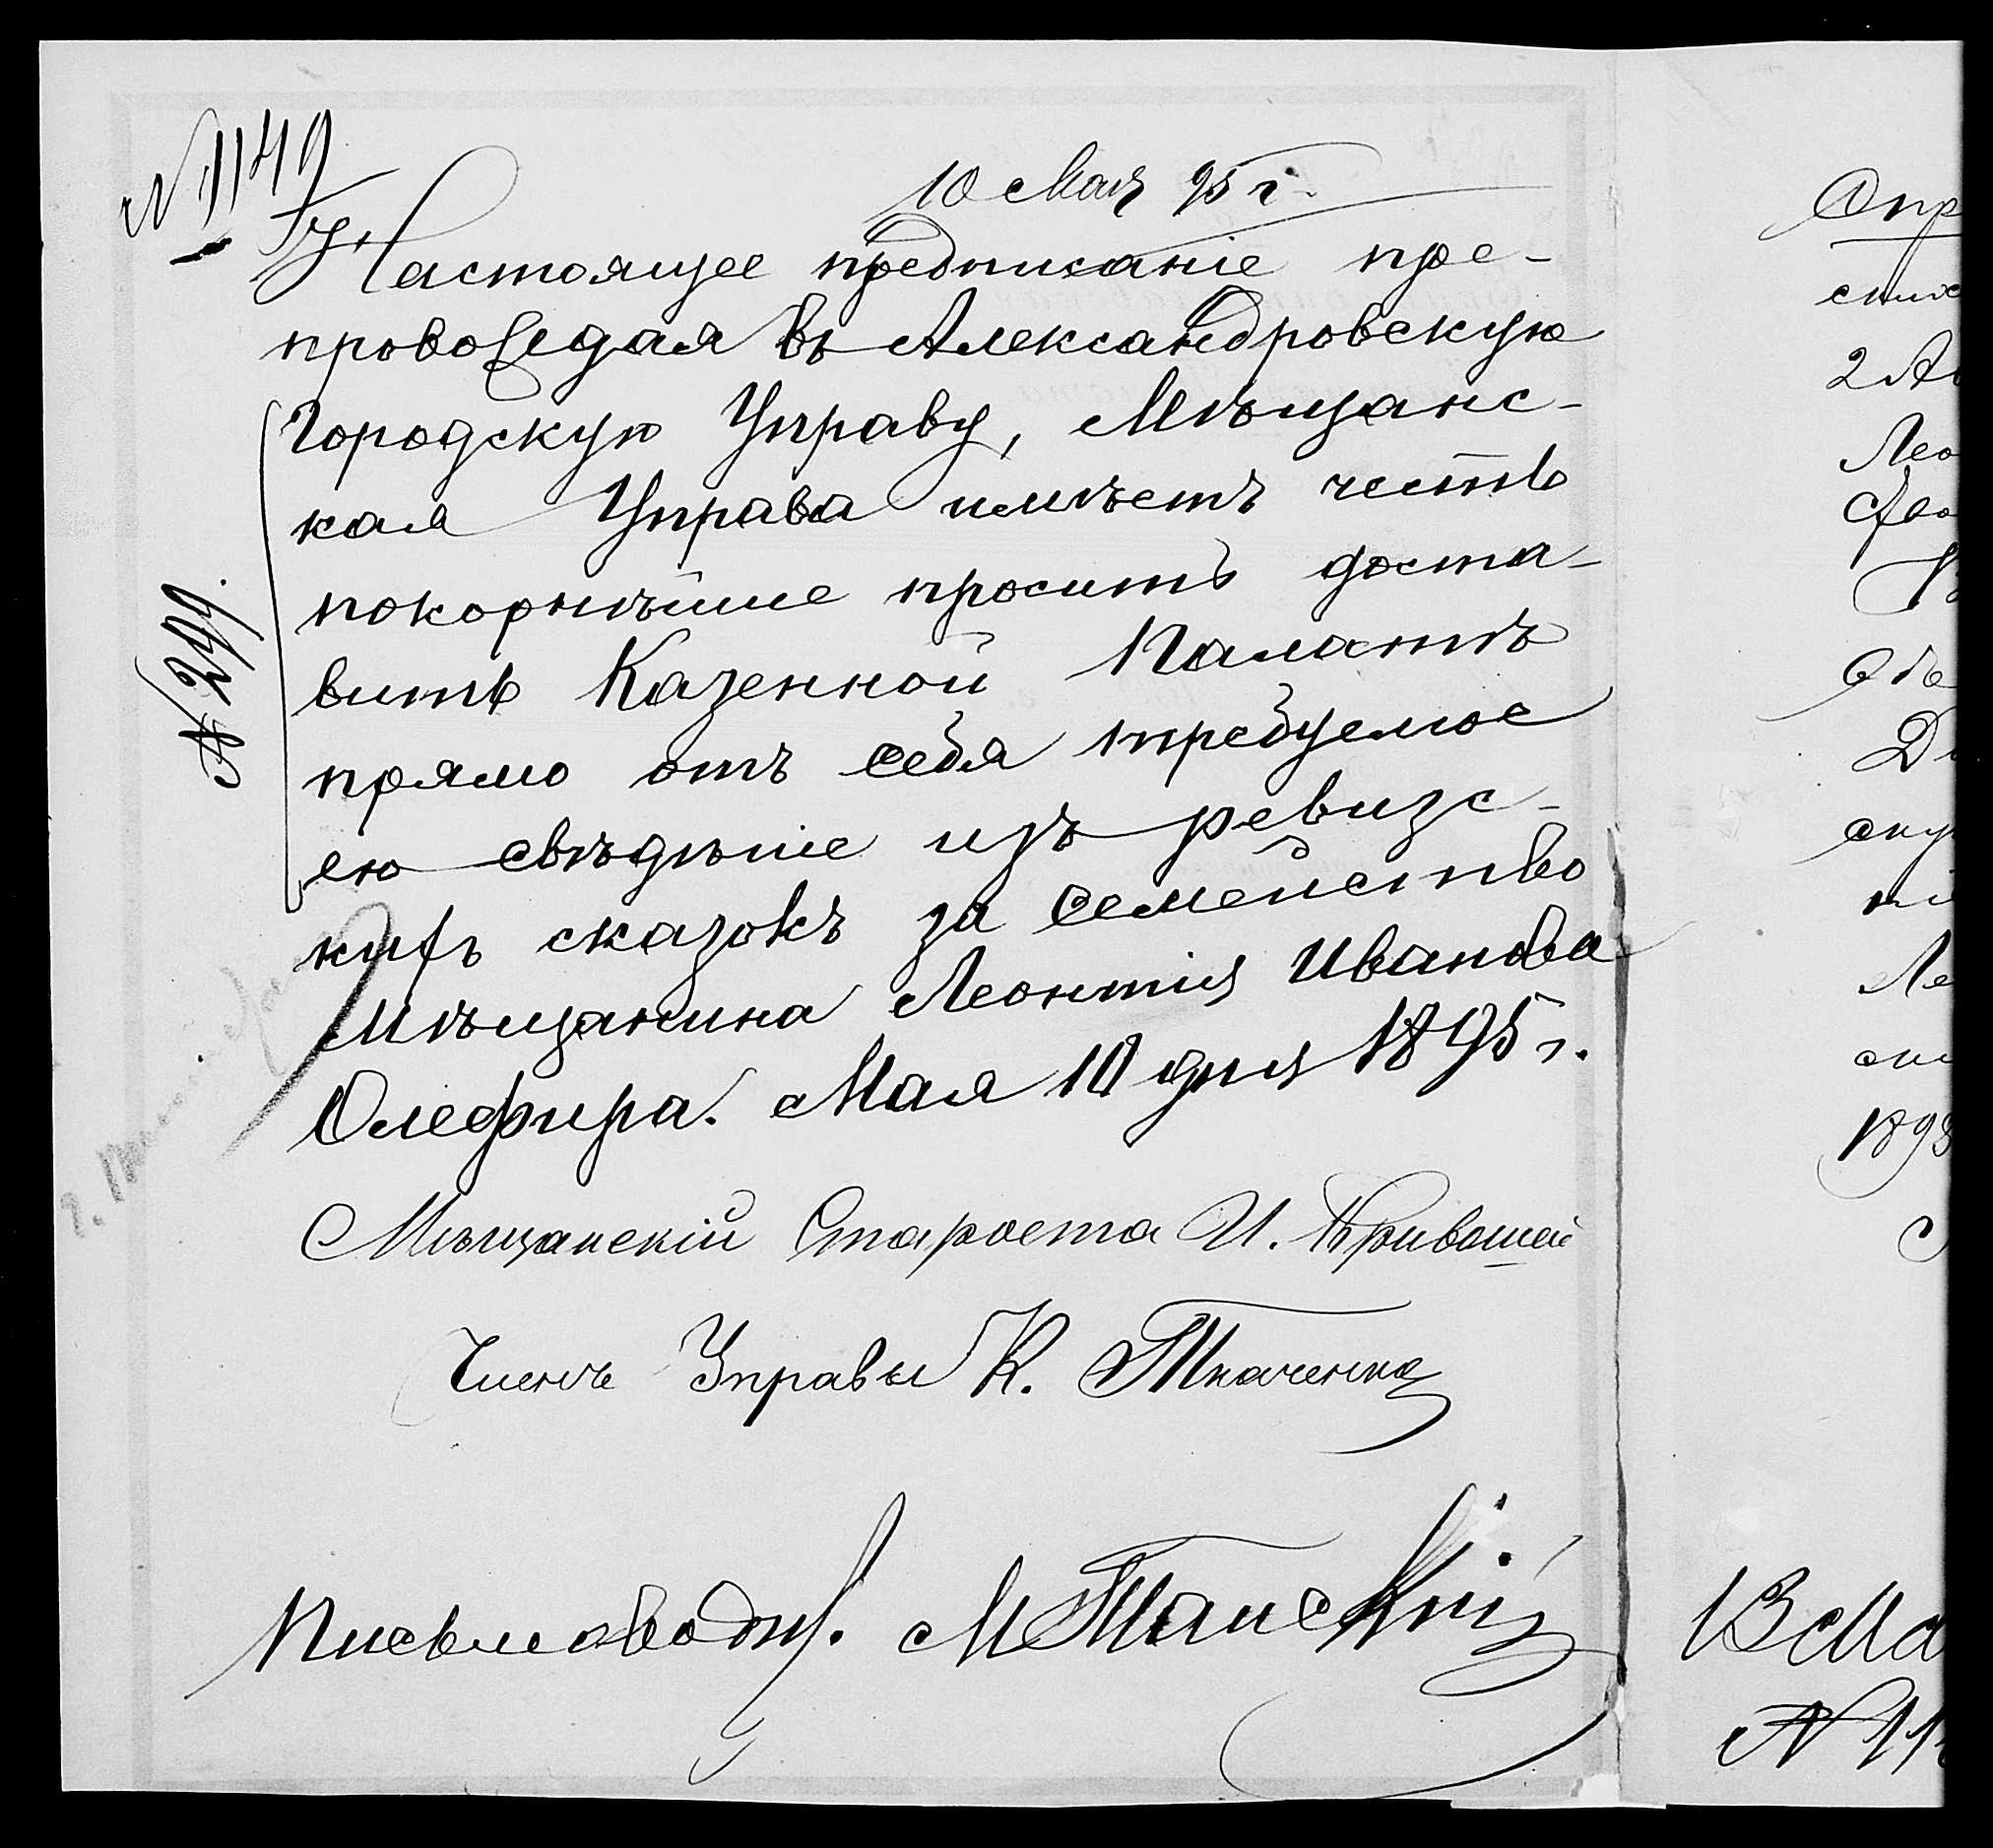 № 1149
10 Мая 95 г.
Настоящее предписаніе пре-
провождая въ Александровскую
Городскую Управу, Мѣщанс-
кая Управа имѣетъ честь
покорнѣйше проситъ доста-
вить Казенной Палатѣ
прямо отъ себя требуемое
ею свѣдѣніе изъ ревизс-
кихъ сказокъ за семейство
мѣщанина Леонтія Иванова
Олефира. Мая 10 дня 1895 г.
Мѣщанскій Староста И. Кривошей
Членъ Управы К. Ткаченко
Письмоводит. М Танскій
№ 299.
Опр
спис
2 Ав
Лео
Об
До
Ле
1895
13 Ма
№ 11